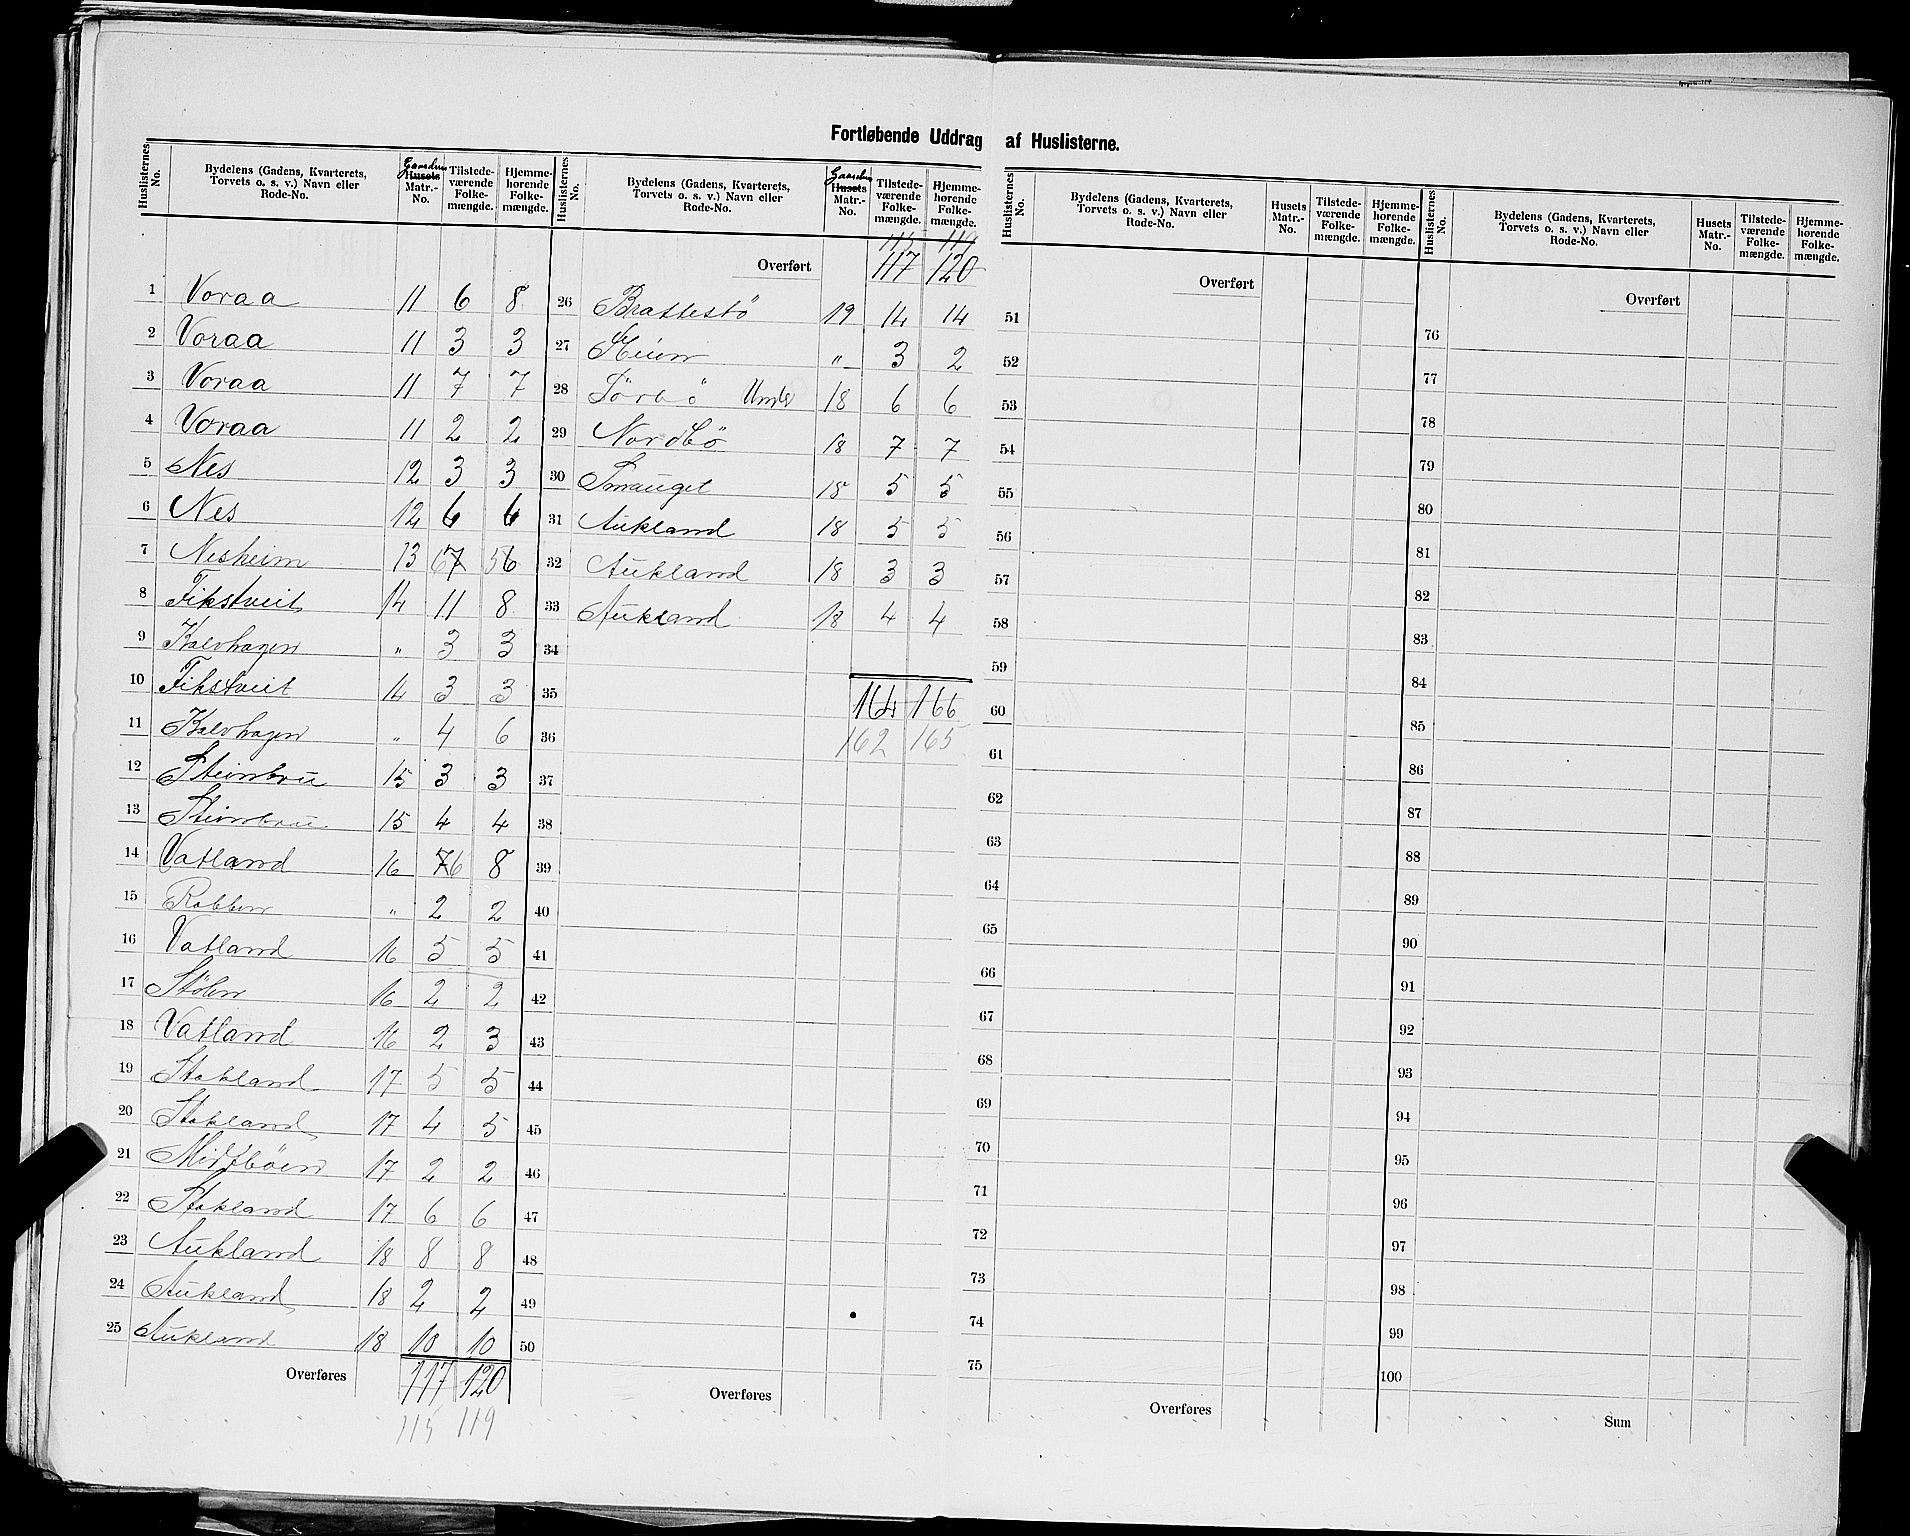 Fortløbende Uddrag af Huslisterne.
Huslisternes No. | Bydelens (Gadens, Kvarterets, Torvets o. s. v.) Navn eller Rode-No. | Gaardens Husets Matr.-No. | Tilstede-værende Folke-mængde. | Hjemme-hørende Folke-mængde.
1 Voraa 11 6 8
2 Voraa 11 3 3
3 Voraa 11 7 7
4 Voraa 11 2 2
5 Nes 12 3 3
6 Nes 12 6 6
7 Nesheim 13 67 56
8 Fikstveit 14 11 8
9 Kalvhagen " 3 3
10 Fikstveit 14 3 3
11 Kalvhagen " 4 6
12 Steinbru 15 3 3
13 Steinbru 15 4 4
14 Vatland 16 76 8
15 Rabben " 2 2
16 Vatland 16 5 5
17 Stølen 16 2 2
18 Vatland 16 2 3
19 Stakland 17 5 5
20 Stakland 17 4 5
21 Midtböen 17 2 2
22 Stakland 17 6 6
23 Aukland 18 8 8
24 Aukland 18 2 2
25 Aukland 18 10 10
Overføres 117 120
115 119
Huslisternes No. | Bydelens (Gadens, Kvarterets, Torvets o. s. v.) Navn eller Rode-No. | Gaardens Husets Matr.-No. | Tilstede-værende Folke-mængde. | Hjemme-hørende Folke-mængde.
115 119
Overført 117 120
26 Brattestö 19 14 14
27 Heim " 3 2
28 Sörbö Under 18 6 6
29 Nordbö 18 7 7
30 Smauget 18 5 5
31 Aukland 18 5 5
32 Aukland 18 3 3
33 Aukland 18 4 4
34
35 164 166
36 162 165
37
38
39
40
41
42
43
44
45
46
47
48
49
50
Overføres
Huslisternes No. | Bydelens (Gadens, Kvarterets, Torvets o. s. v.) Navn eller Rode-No. | Husets Matr.-No. | Tilstede-værende Folke-mængde. | Hjemme-hørende Folke-mængde.
Overført
51
52
53
54
55
56
57
58
59
60
61
62
63
64
65
66
67
68
69
70
71
72
73
74
75
Overføres
Huslisternes No. | Bydelens (Gadens, Kvarterets, Torvets o. s. v.) Navn eller Rode-No. | Husets Matr.-No. | Tilstede-værende Folke-mængde. | Hjemme-hørende Folke-mængde.
Overført
76
77
78
79
80
81
82
83
84
85
86
87
88
89
90
91
92
93
94
95
96
97
98
99
100
Sum